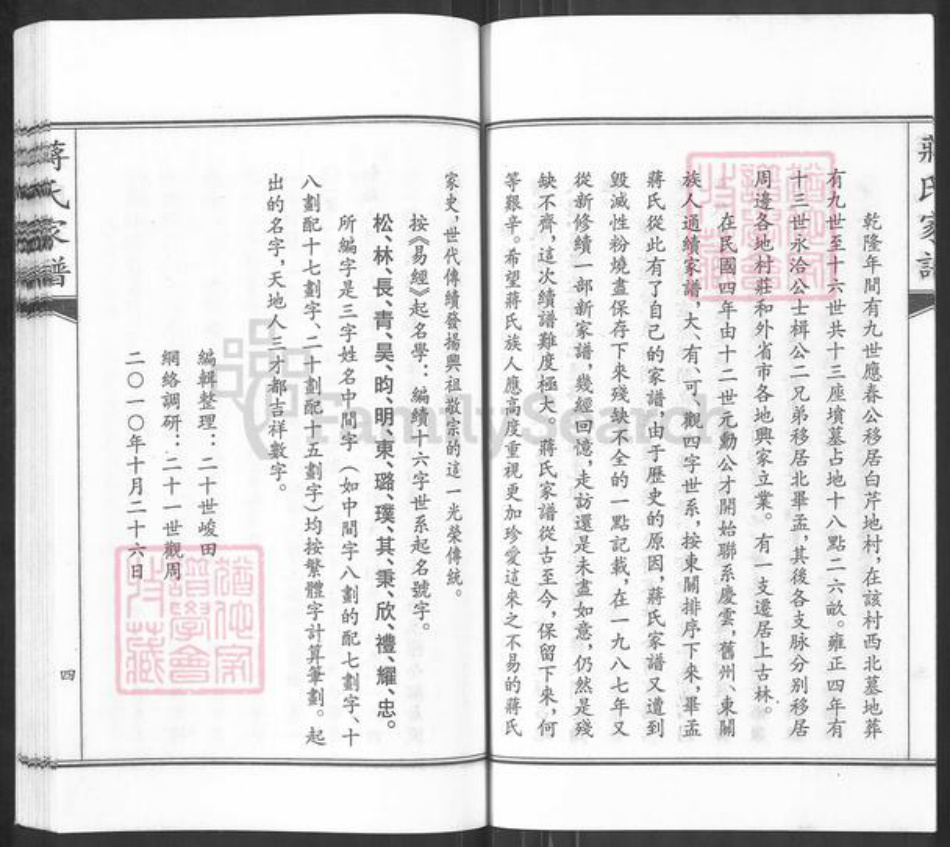 蔣氏家譜
乾隆年間有九世應春公移居白芹地村，在該村西北墓地葬
有九世至十六世共十三座墳墓占地十八點二六畝。雍正四年有
十三世永洽公士楫公二兄弟移居北畢孟，其後各支脉分别移居
周邊各地村莊和外省市各地興家立業。有一支遷居上古林。
在民國四年由十二世元勳公才開始聯系慶雲，舊州、東關
族人通續家譜，大、有、可、觀四字世系，按東關排序下來，畢孟
蔣氏從此有了自己的家譜，由于歷史的原因，蔣氏家譜又遭到
毀滅性粉燒盡保存下來殘缺不全的一點記載，在一九八七年又
從新修續一部新家譜，幾經回憶，走訪還是未盡如意，仍然是殘
缺不齊，這次續譜難度極大。蔣氏家譜從古至今，保留下來，何
等艱辛。希望蔣氏族人應高度重視更加珍愛這來之不易的蔣氏
家史，世代傳續發揚興祖敬宗的這一光榮傳統。
按《易經》起名學：編續十六字世系起名號字。
松、林、長、青、昊、昀、明、東、璐、璞、其、秉、欣、禮、耀、忠。
所編字是三字姓名中間字（如中間字八劃的配七劃字、十
八劃配十七劃字、二十劃配十五劃字）均按繁體字計算筆劃。起
出的名字，天地人三才都吉祥數字。
編輯整理：二十世峻田
網絡調研：二十一世觀周
二〇一〇年十月二十六日
蔣氏家譜
四
FamilySearch